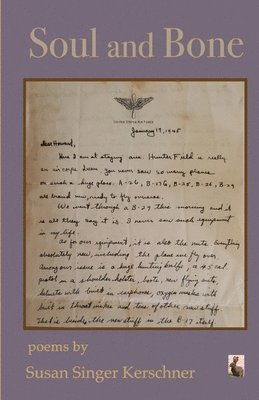 Soul and Bone
UNITED STATES AIR FORCE
January 19, 1945
Dear Howard,
Here I am at staging and Hunter Field is really
an air corps town. You never saw so many planes
on such a huge place. A-26, B-17G, B-25, B-26, B-29
all brand new, ready to fly overseas.
We went through a B-29 this morning and it
is all they say it is. I never saw such equipment
in my life.
As for our equipment, it is also the nuts. Everything
absolutely new, including the plane we fly over.
Among our issue is a huge hunting knife, a 45 cal.
pistol in a shoulder holster, boots, new flying suits,
helmets with built in earphones, oxygen masks with
built in throat mikes and tons of other new stuff.
That is besides the new stuff in the B-17 itself.
poems by
Susan Singer Kerschner